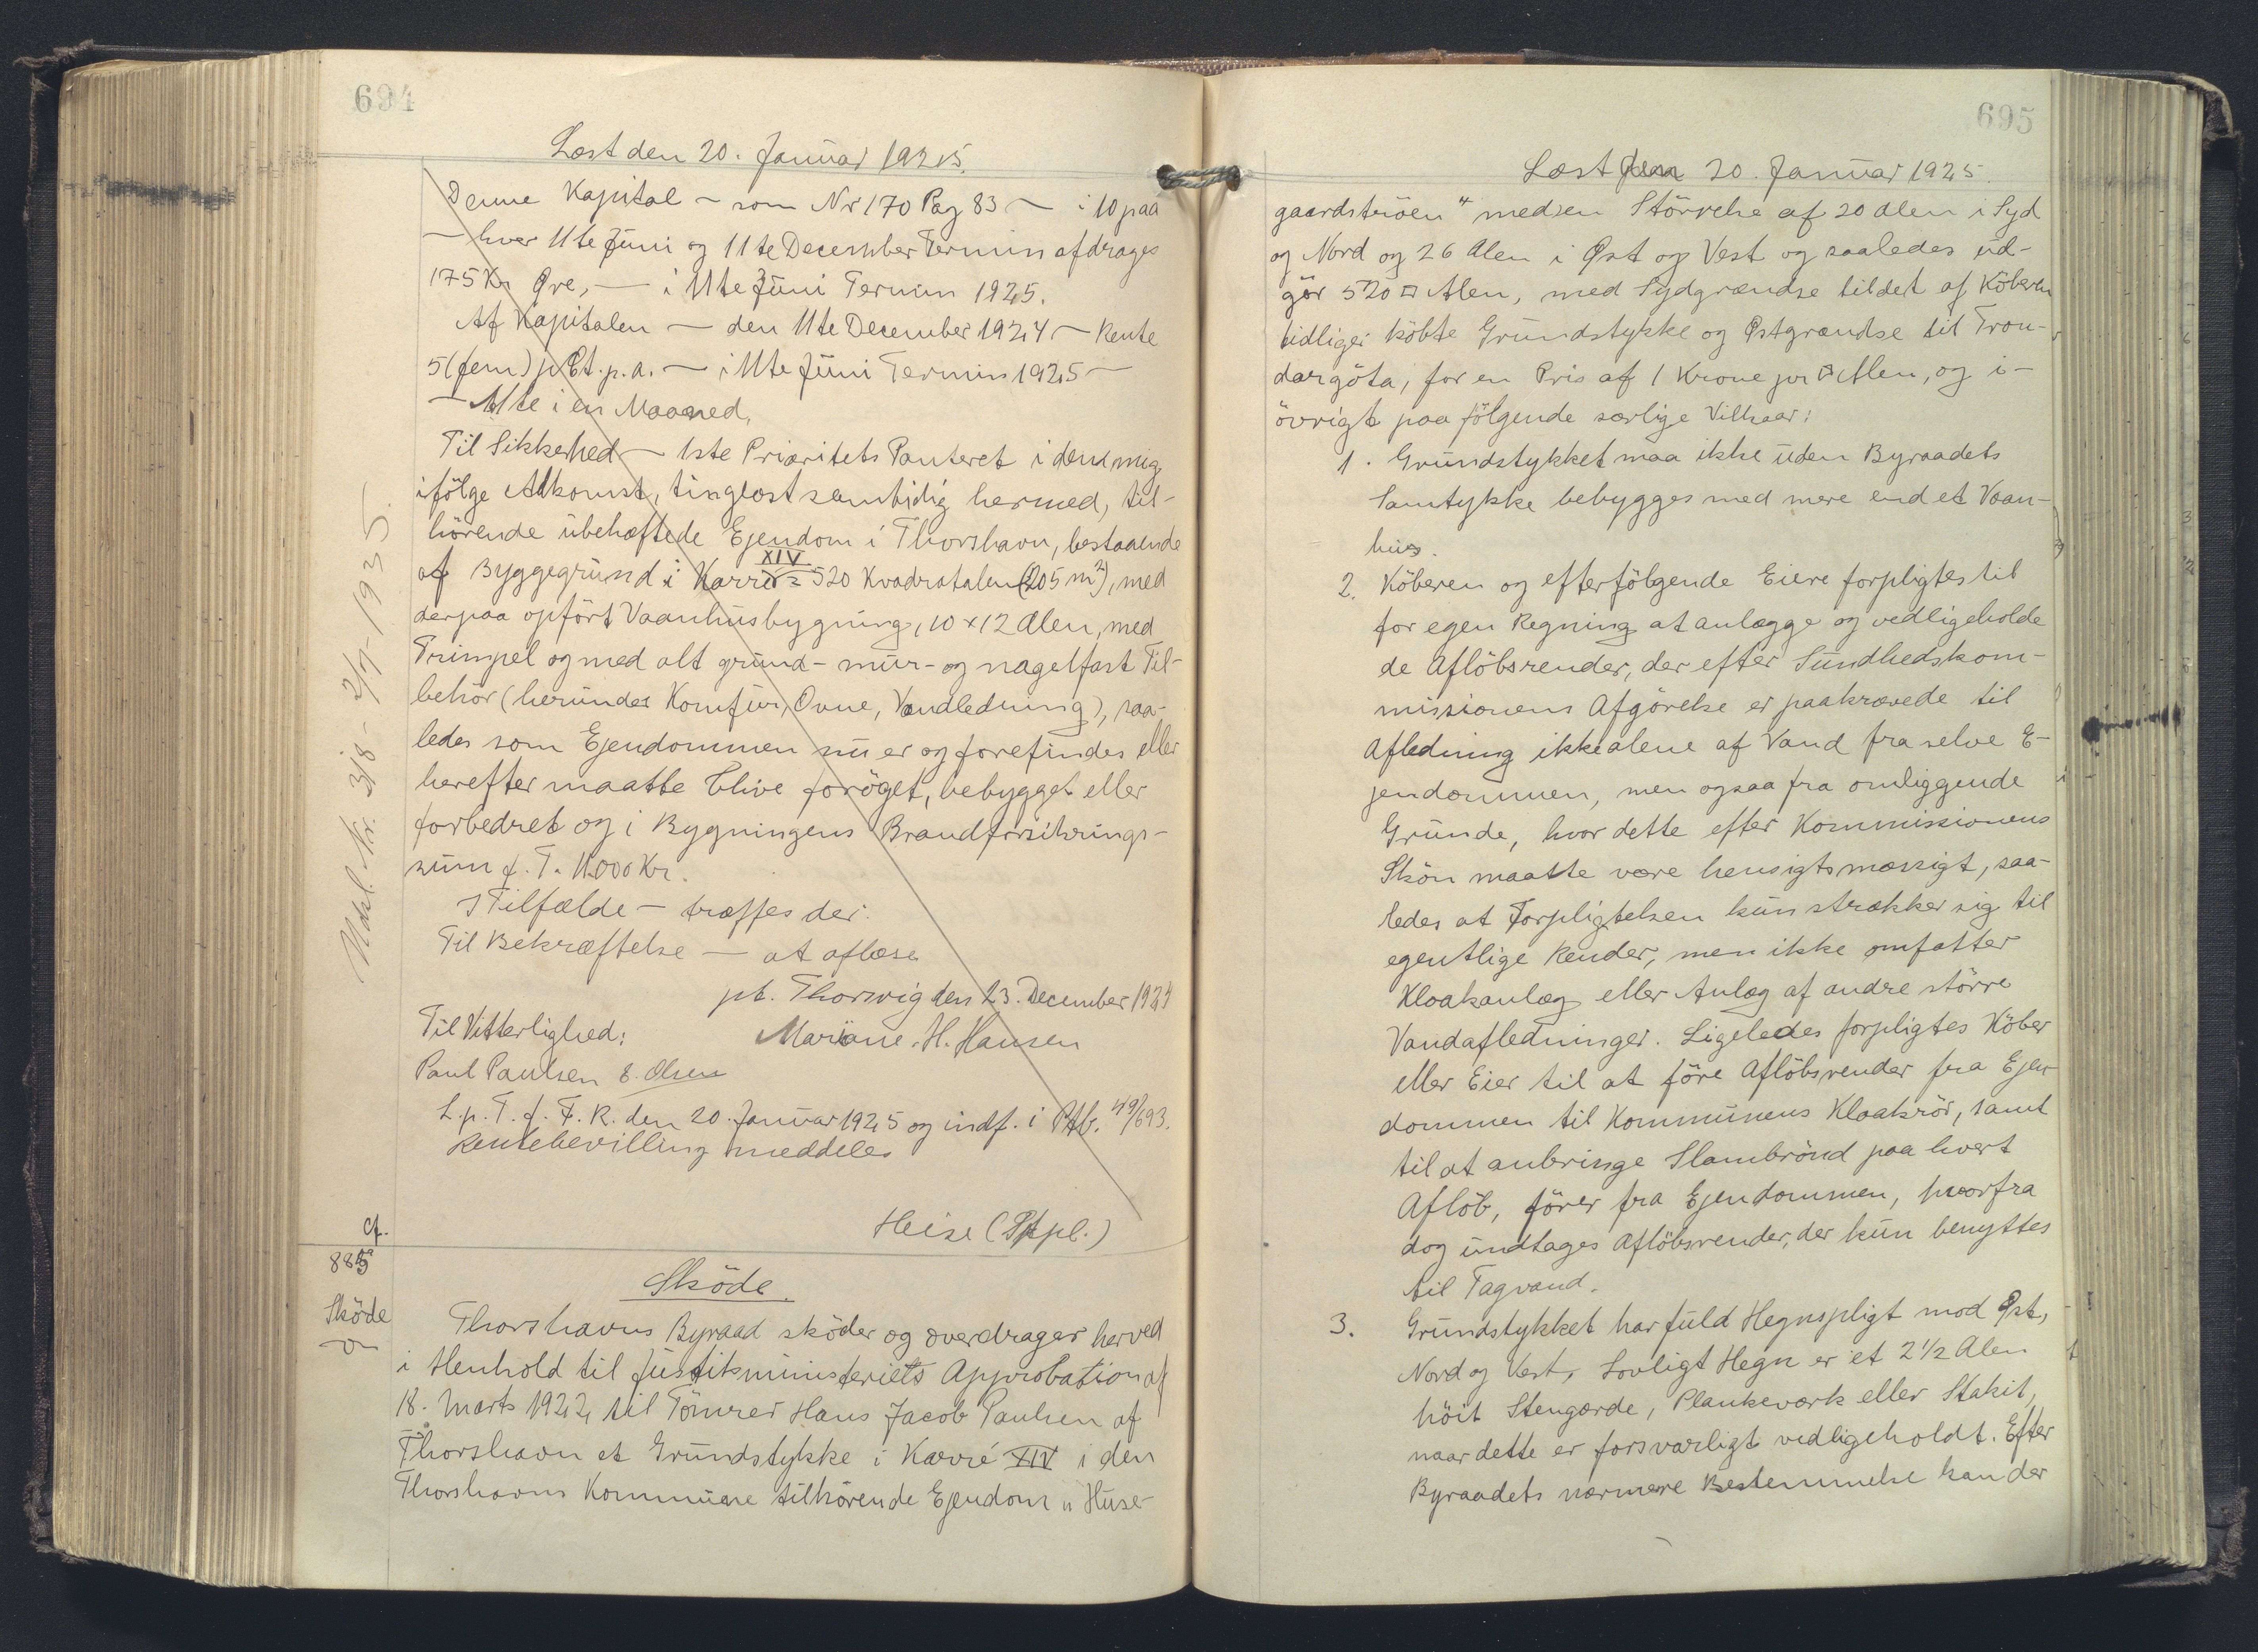 694
Læst den 20. Januar 1925.
Denne Kapital – som Nr 170 Pag 83 – i 10 paa
– hver 11te Juni og 11te December Termin afdrages
175 Kr Øre, – i 11te Juni Termin 1925.
Af Kapitalen – den 11te December 1924 – Rente
5 (fem) p Ct. p.a. – i 11te Juni Termin 1925 –
– 11te i en Maaned.
Til Sikkerhed – 1ste Prioritets Panteret i den mig
ifölge Adkomst, tinglæst samtidig hermed, til-
hörende ubehæftede Ejendom i Thorshavn, bestaaende
af Byggegrund i Karré XIV = 520 Kvadratalen (205 m²), med
derpaa opfört Vaanhusbygning, 10 x 12 Alen, med
Trimpel og med alt grund- mur- og nagelfast Til-
behör (herunder Komfur, Ovne, Vandledning), saa-
ledes som Ejendommen nu er og forefindes eller
herefter maatte blive foröget, bebygget eller
forbedret og i Bygningens Brandforsikrings-
sum f. T. 11.000 Kr.
I Tilfælde – træffes der.
Til Bekræftelse – at aflæse
pt. Thorsvig den 23. December 1924
Til Vitterlighed: Mariane. H. Hansen
Paul Paulsen E. Olsen
L. p. T. f. F. R. den 20. Januar 1925 og indf. i Ptb. 49/693.
Rentebevilling meddeles
Heise (Ptpl.)
Udsl. Nr. 3/8 - 2/7-1935.
Cf.
885
Sköde
Sköde.
Thorshavns Byraad sköder og overdrager herved
i Henhold til Justitsministeriets Approbation af
18. Marts 1922, til Tömrer Hans Jacob Paulsen af
Thorshavn et Grundstykke i Karré XIV i den
Thorshavns Kommune tilhörende Ejendom "Huse-
695
Læst den 20. Januar 1925.
gaardströen" med en Störrelse af 20 Alen i Syd
og Nord og 26 Alen i Øst og Vest og saaledes ud-
gör 520 □ Alen, med Sydgrændse til det af Köberen
tidliger köbte Grundstykke og Østgrændse til Tron-
dargöta, for en Pris af 1 Krone pr □ Alen, og i-
övrigt paa fölgende særlige Vilkaar:
1. Grundstykket maa ikke uden Byraadets
Samtykke bebygges med mere end et Vaan-
hus.
2. Köberen og efterfölgende Eiere forpligtes til
for egen Regning at anlægge og vedligeholde
de Aflöbsrender, der efter Sundhedskom-
missionens Afgörelse er paakrævede til
Afledning ikke alene af Vand fra selve E-
jendommen, men ogsaa fra omliggende
Grunde, hvor dette efter Kommissionens
Skön maatte være hensigtsmæssigt, saa-
ledes at Forpligtelsen kun strækker sig til
egentlige Render, men ikke omfatter
Kloakanlæg eller Anlæg af andre större
Vandafledninger. Ligeledes forpligtes Köber
eller Eier til at före Aflöbsrender fra Ejen-
dommen til Kommunens Kloakrör, samt
til at anbringe Slambrönd paa hvert
Aflöb, förer fra Ejendommen, hvorfra
dog undtages Aflöbsrender, der kun benyttes
til Tagvand.
3. Grundstykket har fuld Hegnspligt mod Øst,
Nord og Vest. Lovligt Hegn er et 2 1/2 Alen
höit Stengærde, Plankeværk eller Stakit,
naar dette er forsvarligt vedligeholdt. Efter
Byraadets nærmere Bestemmelse kan der